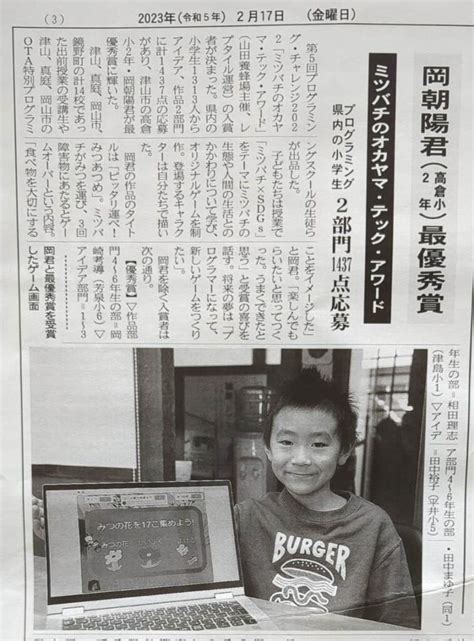 (3)
2023年(令和5年) 2月17日 (金曜日)
岡朝陽君(高倉小2年)最優秀賞
ミツバチのオカヤマ・テック・アワード
プログラミング
県内の小学生
2部門1437点応募
第5回プログラミン
グ・チャレンジ202
2「ミツバチのオカヤ
マ・テック・アワード」
(山田養蜂場主催、レ
プタイル運営)の入賞
者が決まった。県内の
小学生1313人から
アイデア、作品2部門
に計1437点の応募
があり、津山市の高倉
小2年・岡朝陽君が最
優秀賞に輝いた。
津山、真庭、岡山市、
鏡野町の計14校であっ
た出前授業の受講生や
津山、真庭、岡山市の
OTA特別プログラミ
ングスクールの生徒ら
が出品した。
子どもたちは授業で
「ミツバチ×SDGs」
をテーマにミツバチの
生態や人間の生活との
かかわりについて学び、
オリジナルゲームを制
作。登場するキャラク
ターは自分たちで描い
た。
岡君の作品のタイト
ルは「ピッタリ運べ!
みつあつめ」。ミツバ
チがみつを運び、3回
障害物にあたるとゲー
ムオーバーという内容。
「食べ物を大切にする
ことをイメージした」
と岡君。「楽しんでも
らいたいと思ってつく
った。うまくできたと
思う」と受賞の喜びを
話す。将来の夢は「プ
ログラマーになって、
新しいゲームをつくり
たい」。
岡君を除く入賞者は
次の通り。
【優秀賞】▽作品部
門4〜6年生の部=岡
崎考導(芳泉小6)▽
アイデア部門=1〜3
年生の部=相田理志
(津島小1)▽アイデ
ア部門4〜6年生の部
=田中裕子(平井小5)
・田中まゆ子(同1)
岡君と最優秀賞を受賞
したゲーム画面
みつの花を17こ集めよう!
BURGER